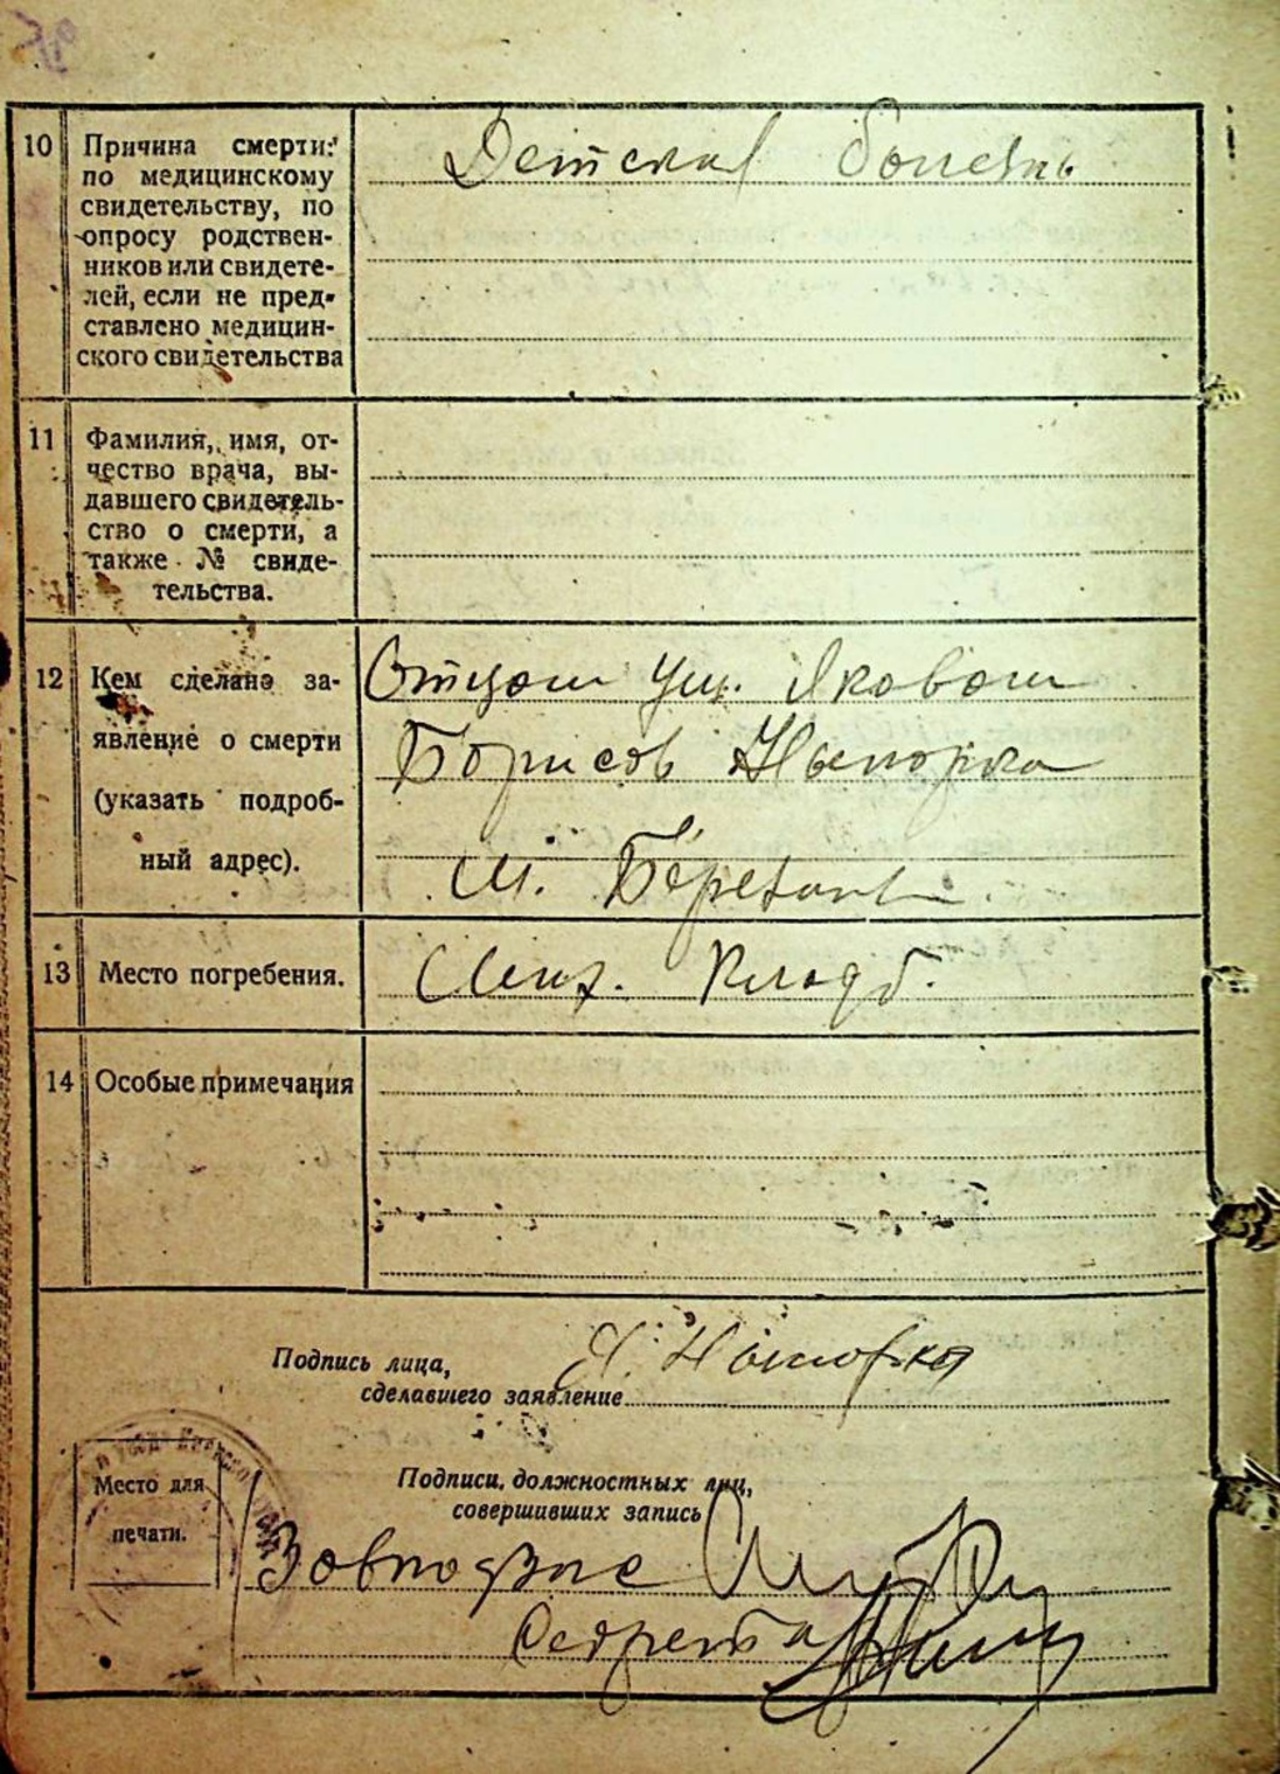 10 Причина смерти:
по медицинскому
свидетельству, по
опросу родствен-
ников или свидете-
лей, если не пред-
ставлено медицин-
ского свидетельства
Детская болезнь
11 Фамилия, имя, от-
чество врача, вы-
давшего свидетель-
ство о смерти, а
также № свиде-
тельства.
12 Кем сделано за-
явление о смерти
(указать подроб-
ный адрес).
Отцом Уш. Яковом
Борисов
м.
13 Место погребения.
Кладб.
14 Особые примечания
Подпись лица,
сделавшего заявление
Я.
Место для
печати.
Подписи должностных лиц,
совершивших запись
Завподзаг
Секретарь